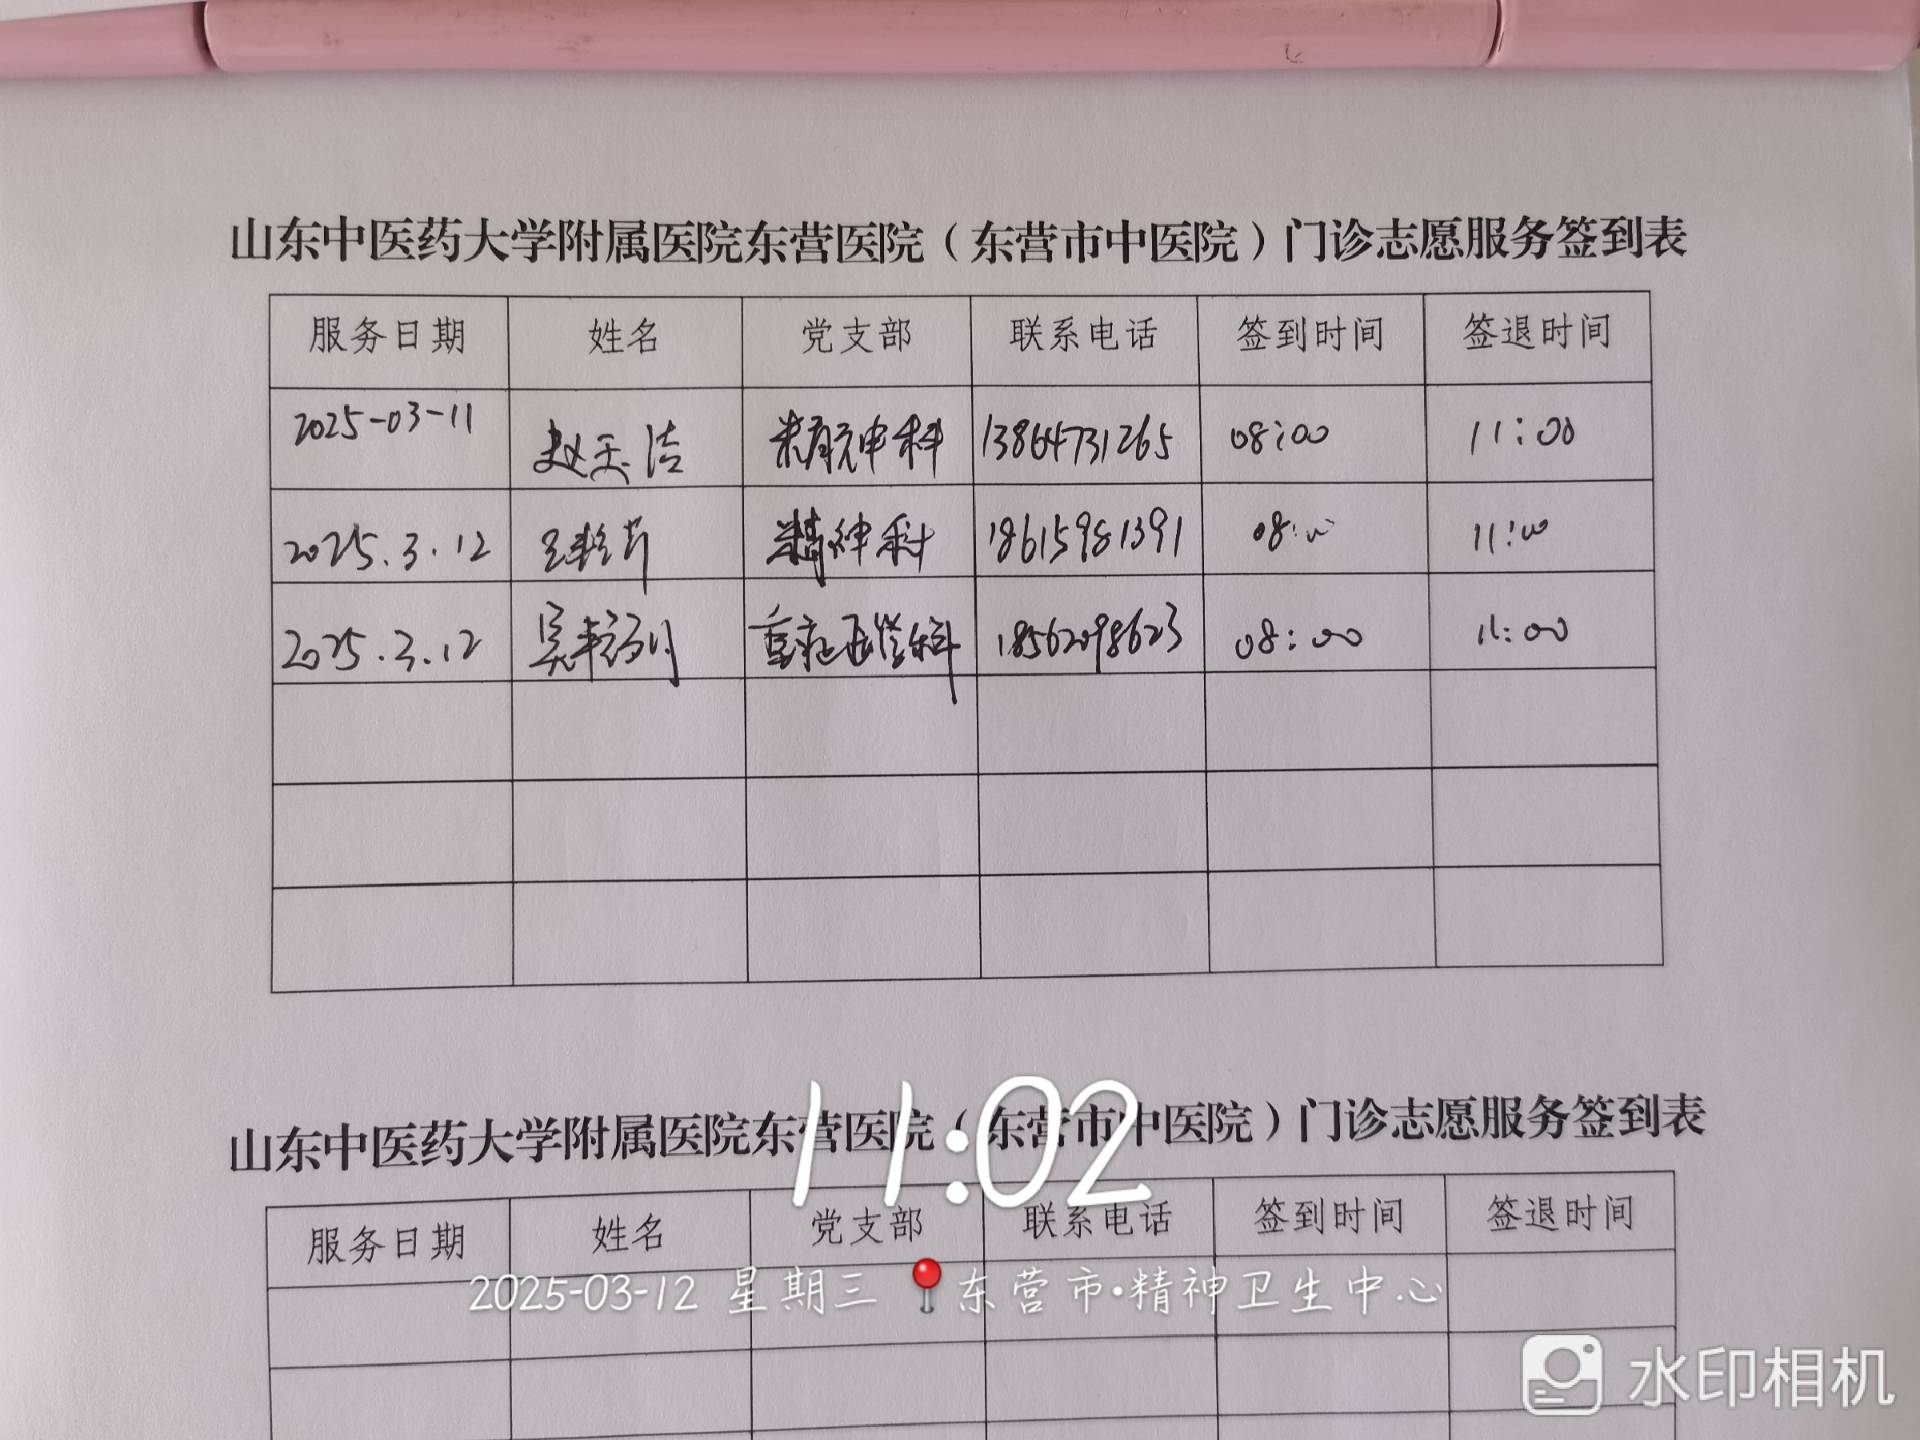 山东中医药大学附属医院东营医院（东营市中医院）门诊志愿服务签到表
服务日期 姓名 党支部 联系电话 签到时间 签退时间
2025-03-11 赵玉洁 精神科 13864731265 08:00 11:00
2025.3.12 精神科 18615981391 08:00 11:00
2025.3.12 重症医学科 18562098623 08:00 11:00
11:02
山东中医药大学附属医院东营医院（东营市中医院）门诊志愿服务签到表
服务日期 姓名 党支部 联系电话 签到时间 签退时间
2025-03-12 星期三 东营市·精神卫生中心
水印相机